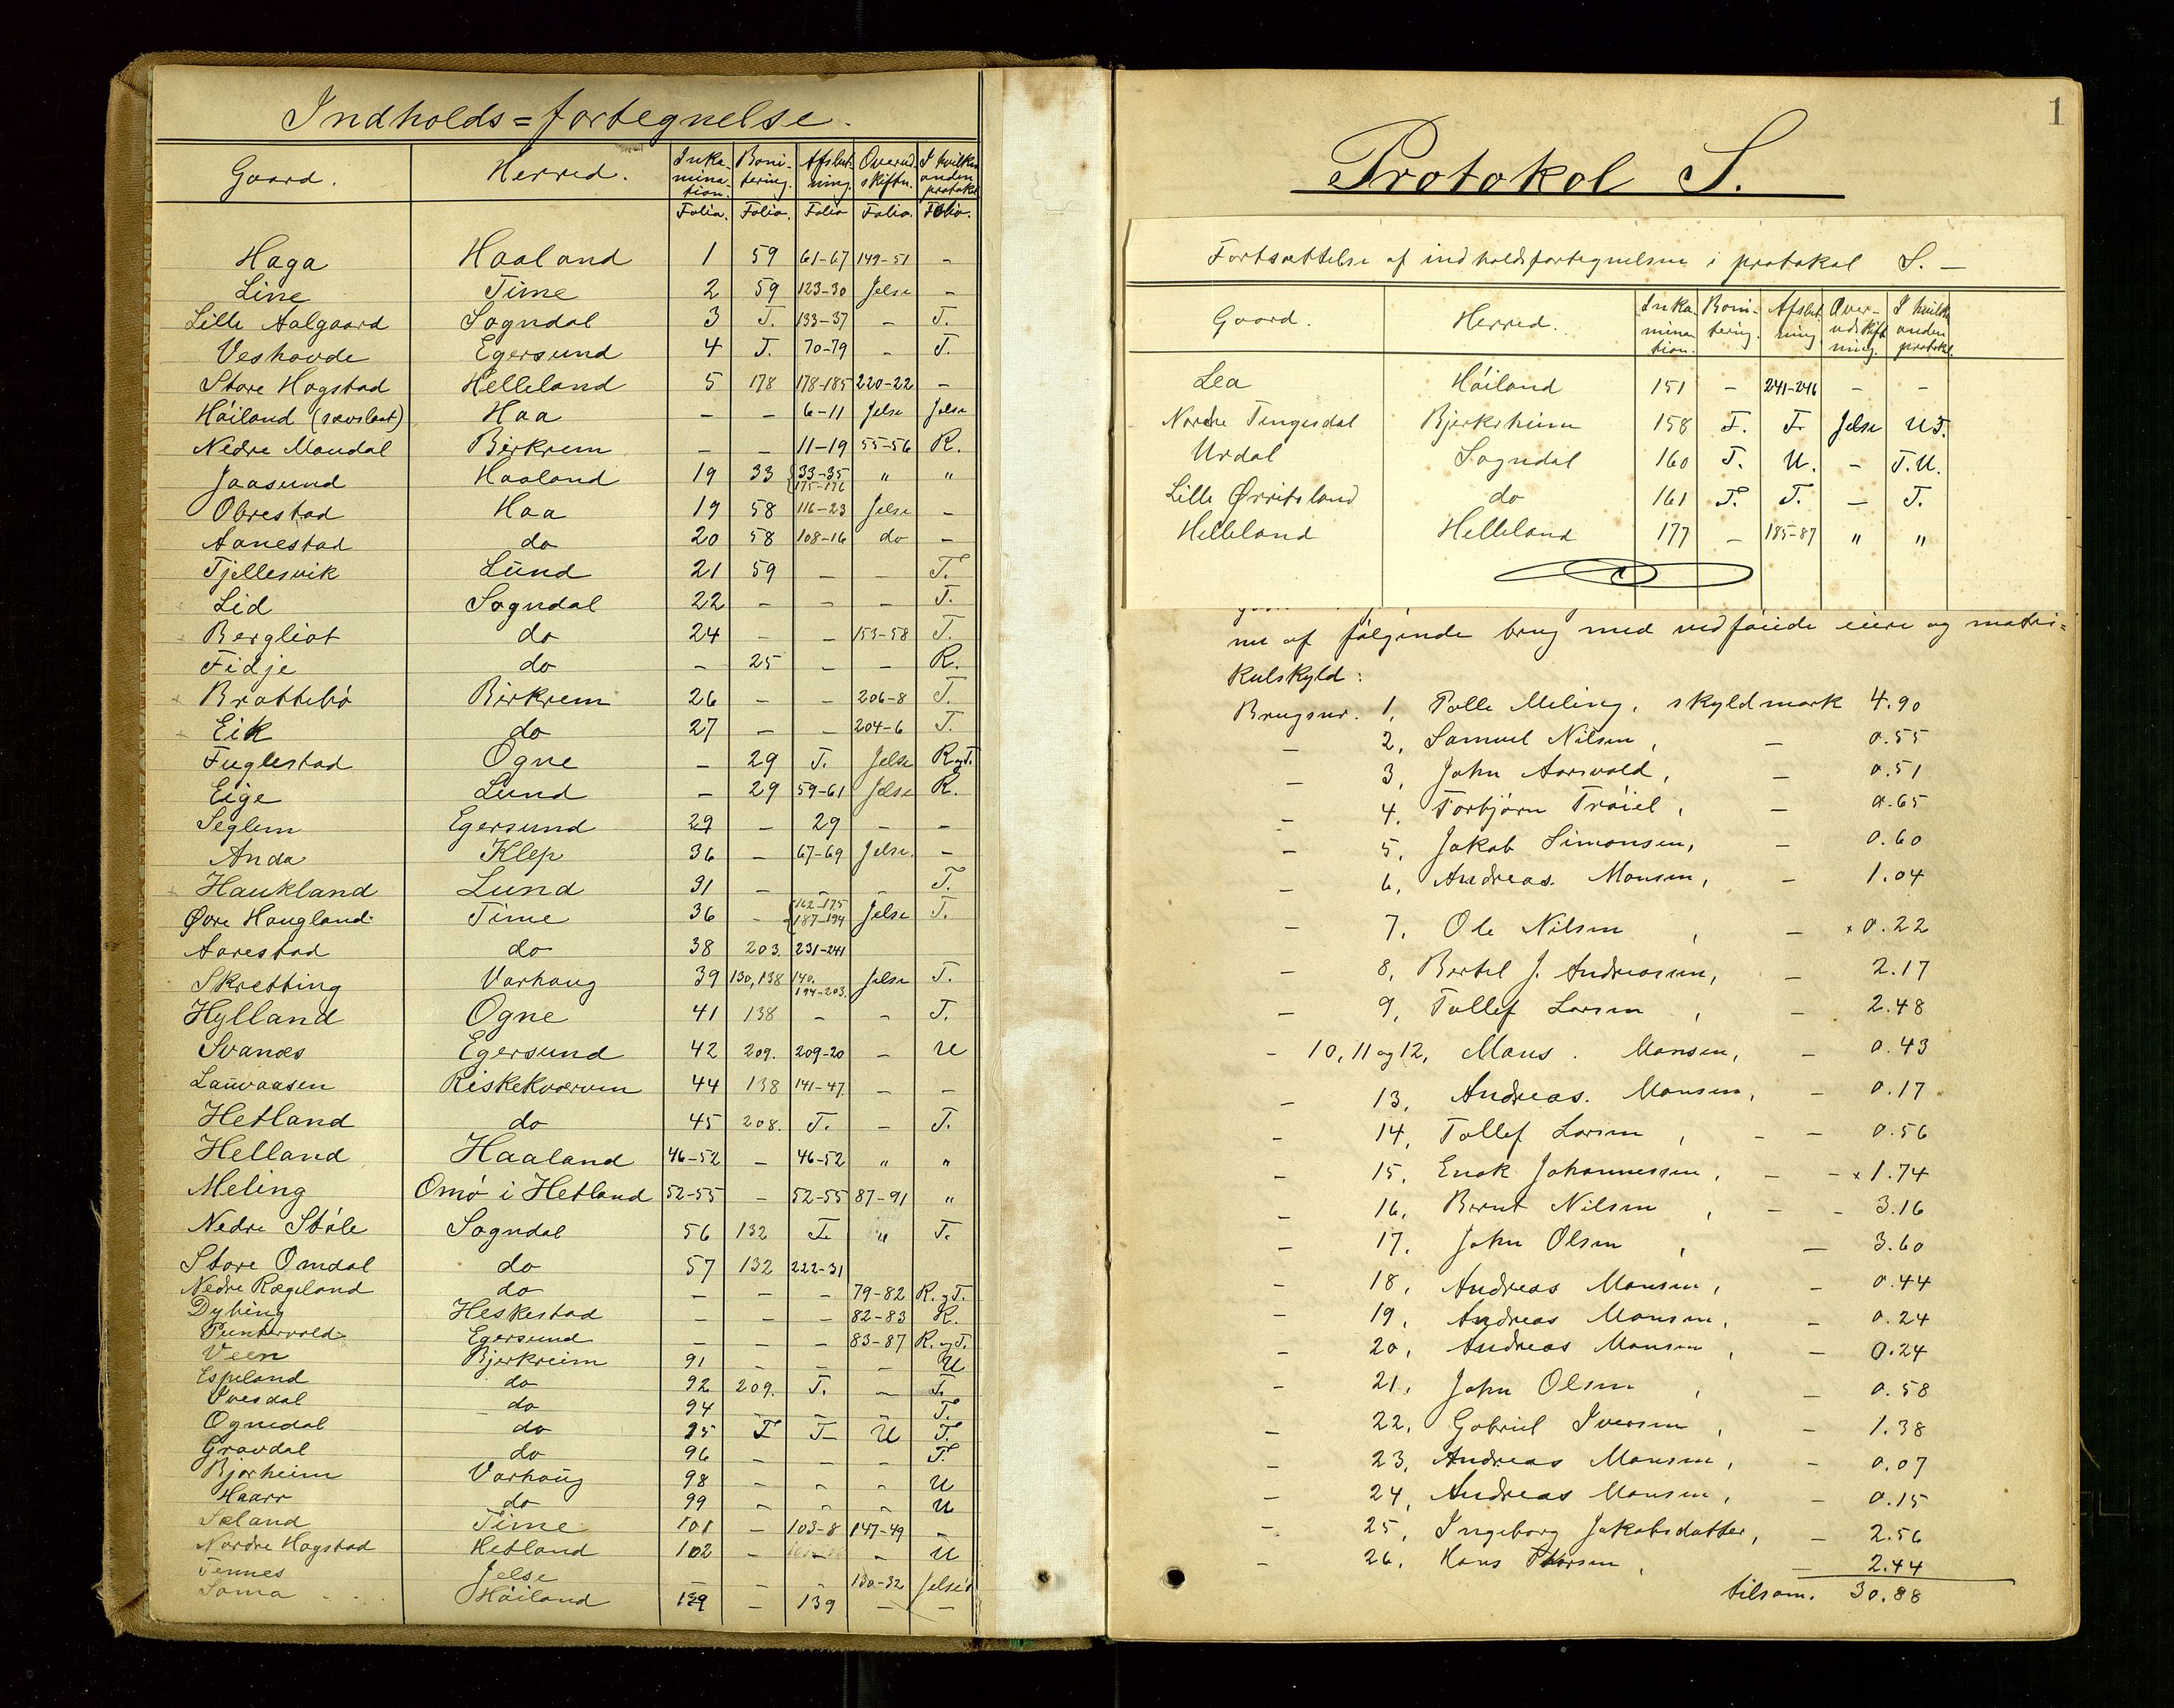 Indholds=fortegnelse.
Gaard. Herred. Inka-mina-tion. Boni-tering. Afslut-ning. Overud-skiftn. I hvilken anden protokol
Folio. Folio. Folio Folio. Folio.
Haga Haaland 1 59 61-67 149-51 -
Line Time 2 59 123-30 Jelse -
Lille Aalgaard Sogndal 3 T. 133-37 - T.
Veshovde Egersund 4 T. 70-79 - T.
Store Hogstad Helleland 5 178 178-185 220-22 -
Höiland (sævslaat) Haa - - 6-11 Jelse Jelse
Nedre Maudal Birkrem - - 11-19 55-56 R.
Jaasund Haaland 19 33 {33-35 175-176 " "
Obrestad Haa 19 58 116-23 Jelse -
Aanestad do 20 58 108-16 do -
Tjellesvik Lund 21 59 - - T.
Lid Sogndal 22 - - - T.
Bergliot do 24 - - 153-58 T.
Fidje do - 25 - - R.
Brattebö Birkrem 26 - - 206-8 T.
Eik do 27 - - 204-6 T.
Fuglestad Ogne - 29 T. Jelse R og T.
Eige Lund - 29 59-61 Jelse R.
Seglem Egersund 29 - 29 - -
Anda Klep 36 - 67-69 Jelse. -
Haukland Lund 31 - - - T.
Øvre Haugland Time 36 - {162-175 187-194 Jelse T.
Aarestad do 38 203. 231-241
Skretting Varhaug 39 130,138 140. 194-203. Jelse T.
Hylland Ogne 41 138 - - T.
Svanes Egersund 42 209. 209-20 - U
Lauvaasen Riskekværven 44 138 141-47. - -
Hetland do 45 208. T. - T.
Helland Haaland 46-52 - 46-52 " "
Meling Omö i Hetland 52-55 - 52-55 87-91 "
Nedre Støle Sogndal 56 132 T. " T.
Store Omdal do 57 132 222-31
Nedre Rægeland do - - - 79-82 R. og T.
Dybing Heskestad - - - 82-83 R.
Puntervold Egersund - - - 83-87 R. og T.
Veen Bjerkreim 91 - - - U
Espeland do 92 209. T. - T.
Ivesdal do 94 - - - T.
Ognedal do 95 T T U T.
Gravdal do 96 - - - T.
Bjorheim Varhaug 98 - - - U
Haarr do 99 - - - U
Sæland Time 101 - 103-8 147-49 -
Nordre Hogstad Hetland 102 - - - U
Tennes Jelse - - - 130-32 Jelse
Soma Höiland 139 - 139 - -
1
Protokol S.
Fortsættelse af indholdsfortegnelsen i protokol S. -
Gaard. Herred. Inka-mina-tion. Boni-tering. Afslut-ning Over-udskift-ning. I hvilken anden protokol.
Lea Höiland 151 - 241-246 - -
Nordre Tengesdal Bjerkrheim 158 T. T. Jelse U T.
Urdal Sogndal 160 T. U. - T. U.
Lille Ørritsland do 161 T. T. - T.
Helleland Helleland 177 - 185-87 " "
ne af fölgende brug med vedföiede eiere og matri=
kulskyld:
Brugsnr. 1, Tolle Meling, skyldmark 4.90
- 2, Samuel Nilsen, - 0.55
- 3, John Aarsvold, - 0.51
- 4, Torbjörn Tröiel, - 0.65
- 5, Jakob Simonsen, - 0.60
- 6, Andreas Monsen, - 1.04
- 7. Ole Nilsen, - x 0.22
- 8, Bertel J. Andreassen, - 2.17
- 9, Tollef Larsen, - 2.48
- 10, 11 og 12, Mons. Monsen, - 0.43
- 13, Andreas. Monsen, - 0.17
- 14, Tollef Larsen, - - 0.56
- 15, Enok Johannessen, - - x 1.74
- 16, Bernt Nilsen, - - 3.16
- 17. John Olsen, - 3.60
- 18, Andreas Monsen, - 0.44
- 19, Andreas Monsen, - 0.24
- 20, Andreas Monsen, - 0.24
- 21, John Olsen, - 0.58
- 22, Gabriel Iversen, - 1.38
- 23, Andreas Monsen, - 0.07
- 24, Andreas Monsen, - 0.15
- 25, Ingeborg Jakobsdatter, - 2.56
- 26, Hans, - 2.44
tilsam. 30.88